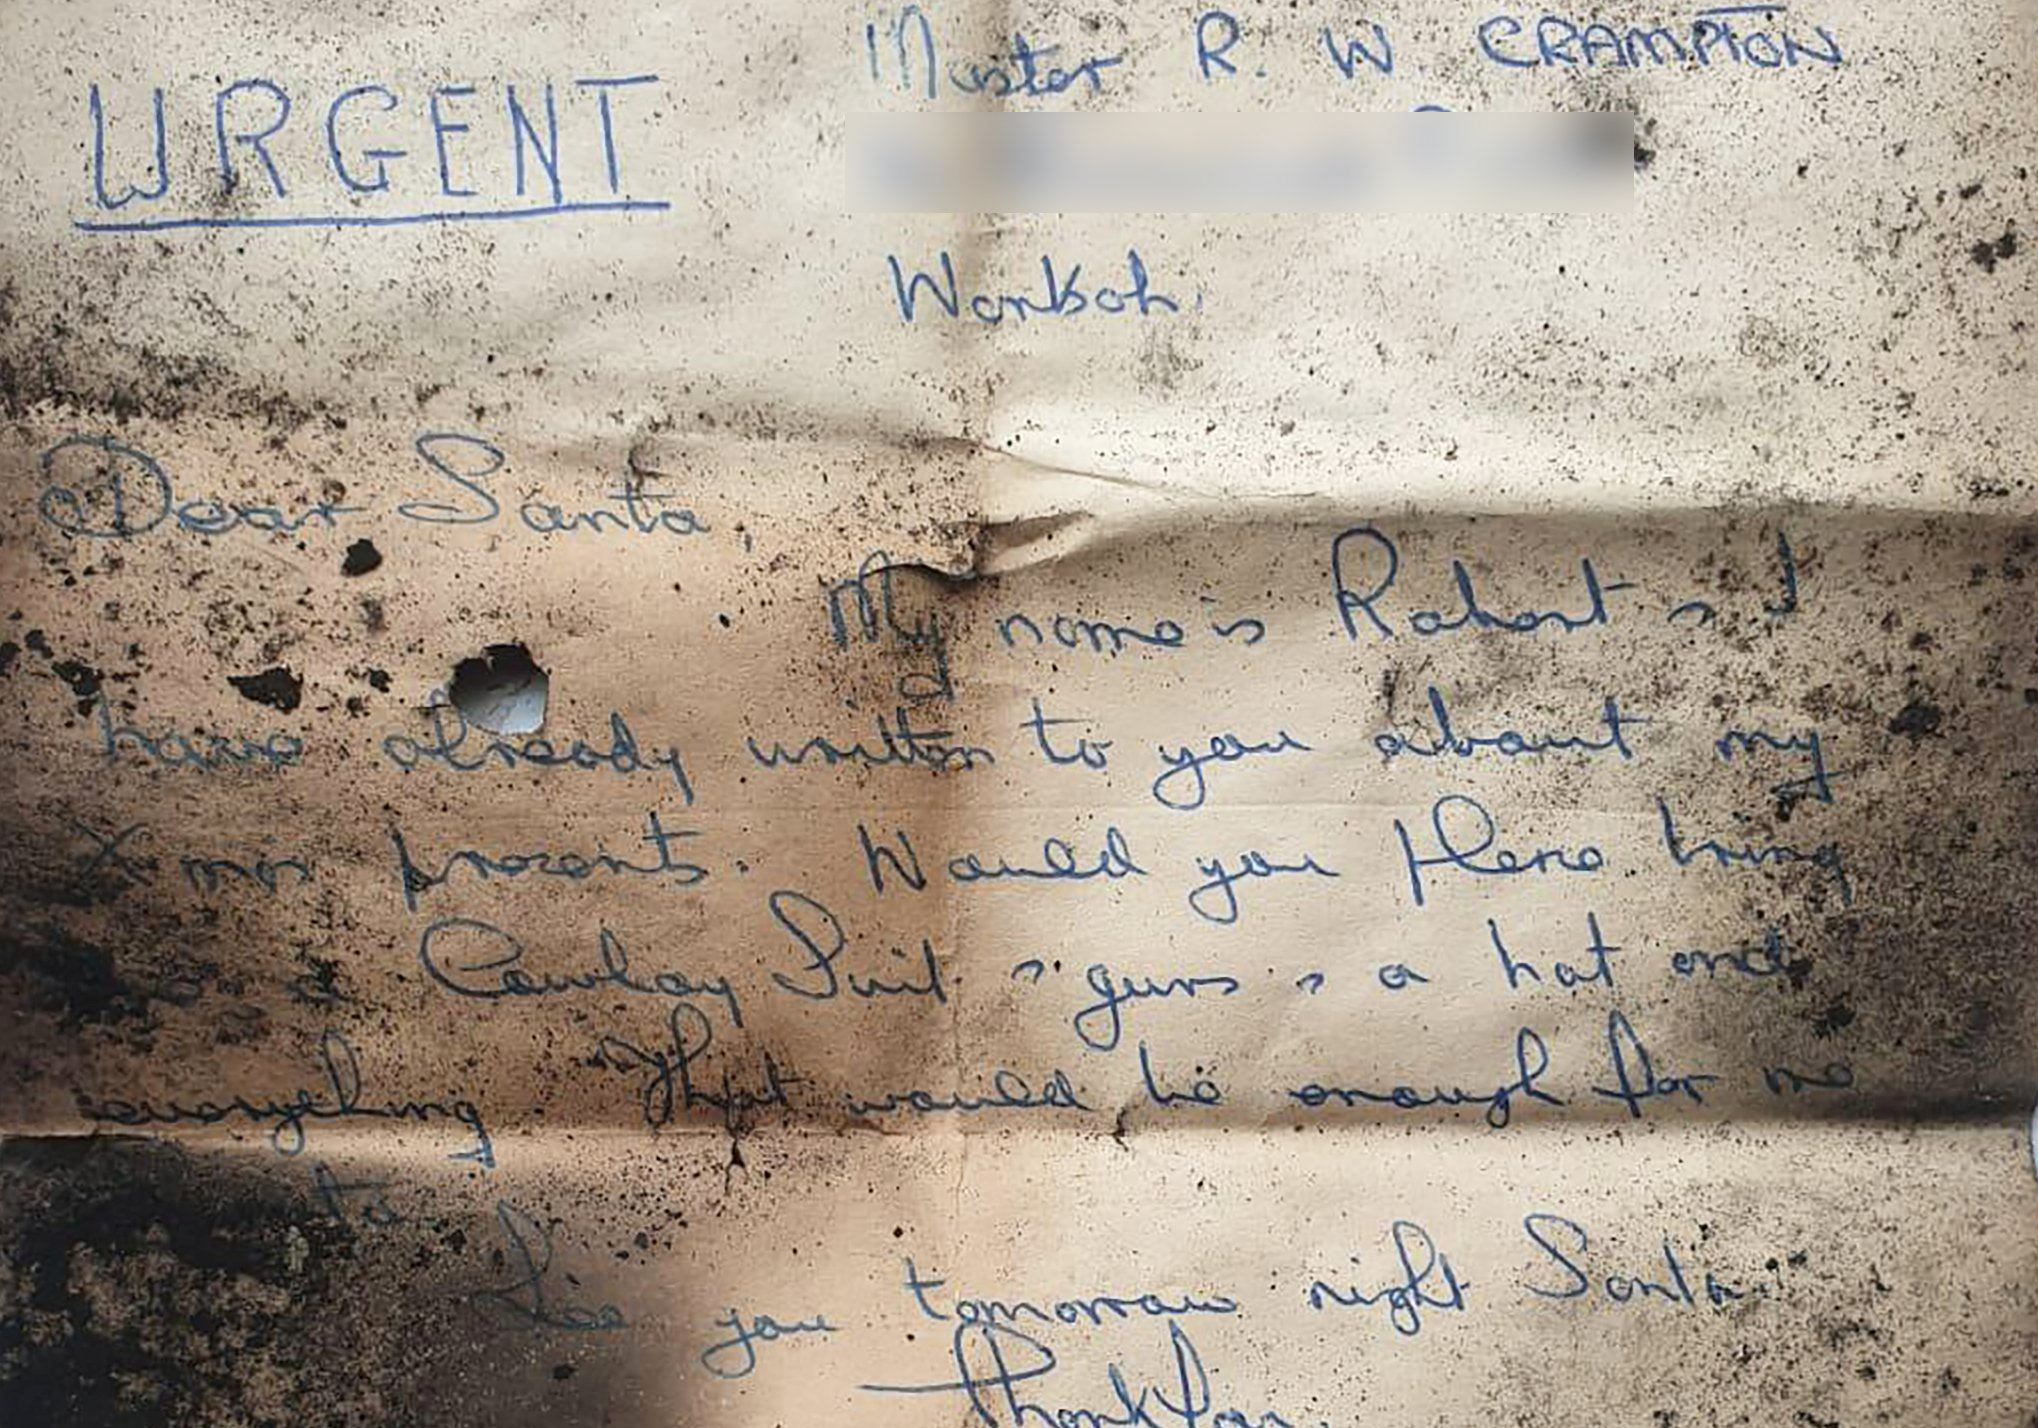 Master R. W. CRAMPTON.
URGENT
Dear Santa,
My name is Robert & I
have already written to you about my
Xmas presents. Would you please bring
a Cowboy Suit & guns & a hat and
everything. That would be enough for me
to.
See you tomorrow night Santa.
Thank You.